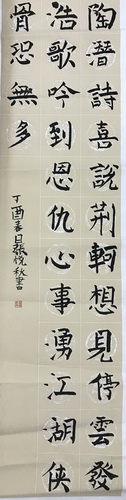 陶潛詩喜說荆軻想見停雲發
浩歌吟到恩仇心事湧江湖俠
骨恐無多
丁酉春日張悅秋書